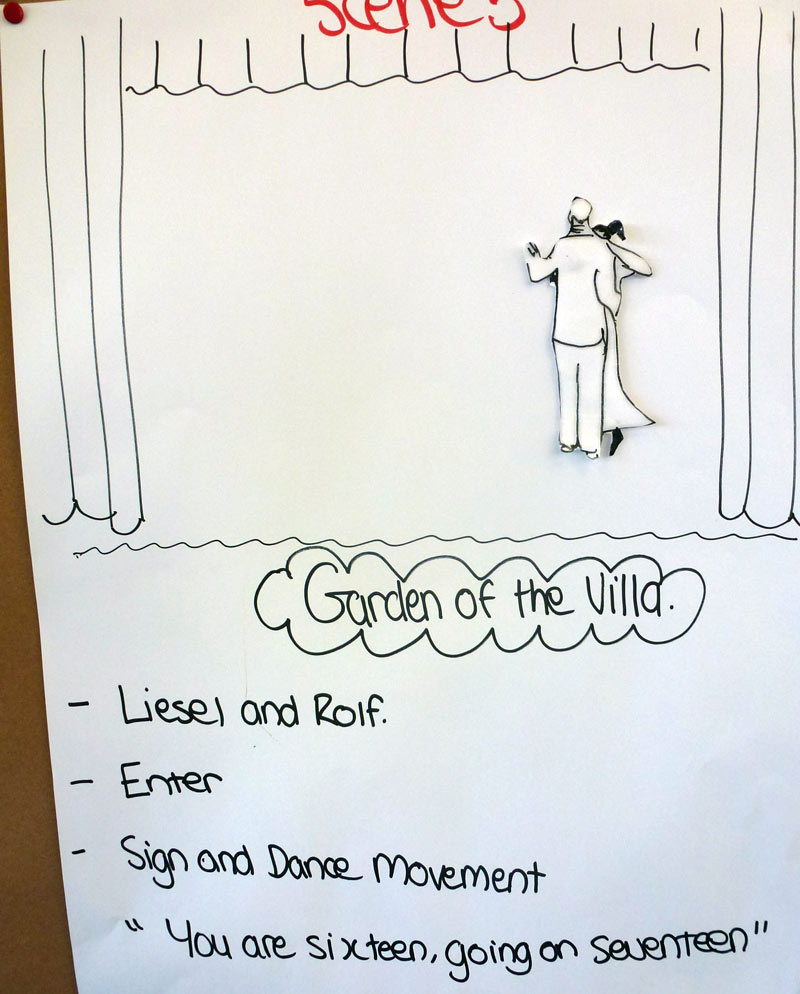 Scene 5
Garden of the Villa.
- Liesel and Rolf.
- Enter
- Sign and Dance Movement
" You are sixteen, going on seventeen"